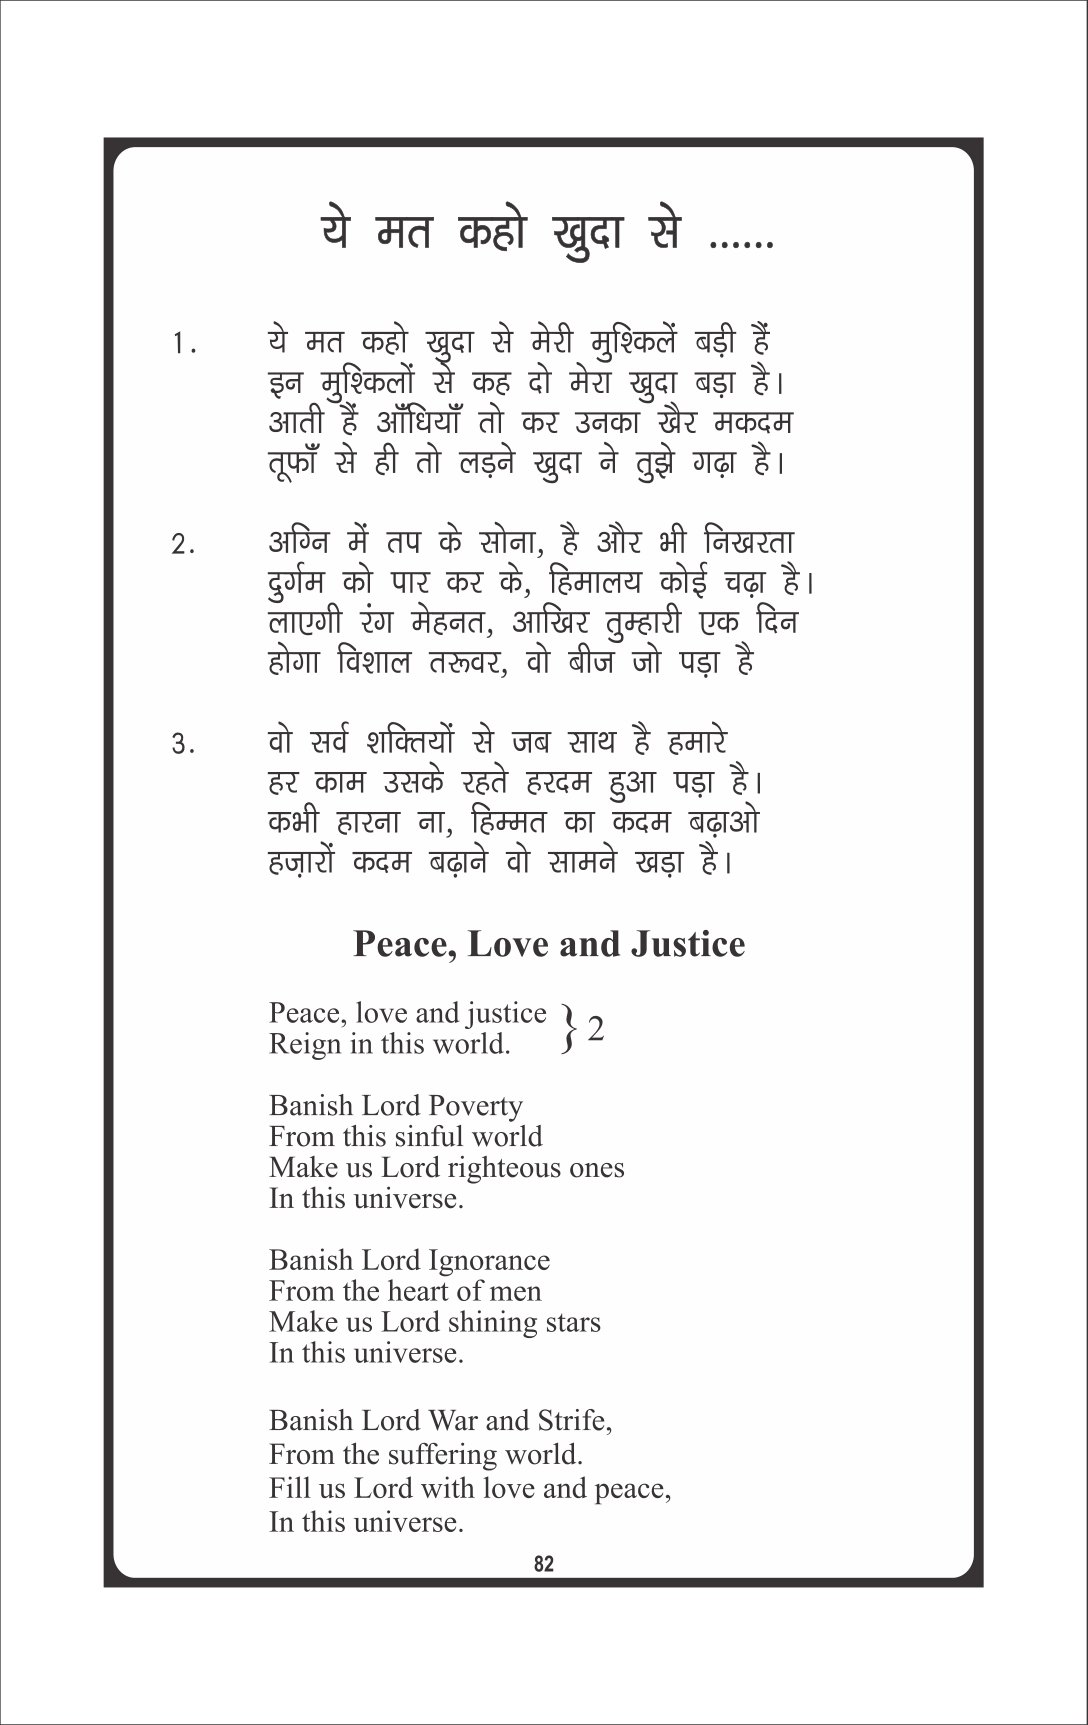 ये मत कहो खुदा से ......
1. ये मत कहो खुदा से मेरी मुश्किलें बड़ी हैं
इन मुश्किलों से कह दो मेरा खुदा बड़ा है।
आती हैं आँधियाँ तो कर उनका खैर मकदम
तूफाँ से ही तो लड़ने खुदा ने तुझे गढ़ा है।
2. अग्नि में तप के सोना, है और भी निखरता
दुर्गम को पार कर के, हिमालय कोई चढ़ा है।
लाएगी रंग मेहनत, आखिर तुम्हारी एक दिन
होगा विशाल तरूवर, वो बीज जो पड़ा है
3. वो सर्व शक्तियों से जब साथ है हमारे
हर काम उसके रहते हरदम हुआ पड़ा है।
कभी हारना ना, हिम्मत का कदम बढ़ाओ
हज़ारों कदम बढ़ाने वो सामने खड़ा है।
Peace, Love and Justice
Peace, love and justice
Reign in this world. } 2
Banish Lord Poverty
From this sinful world
Make us Lord righteous ones
In this universe.
Banish Lord Ignorance
From the heart of men
Make us Lord shining stars
In this universe.
Banish Lord War and Strife,
From the suffering world.
Fill us Lord with love and peace,
In this universe.
82